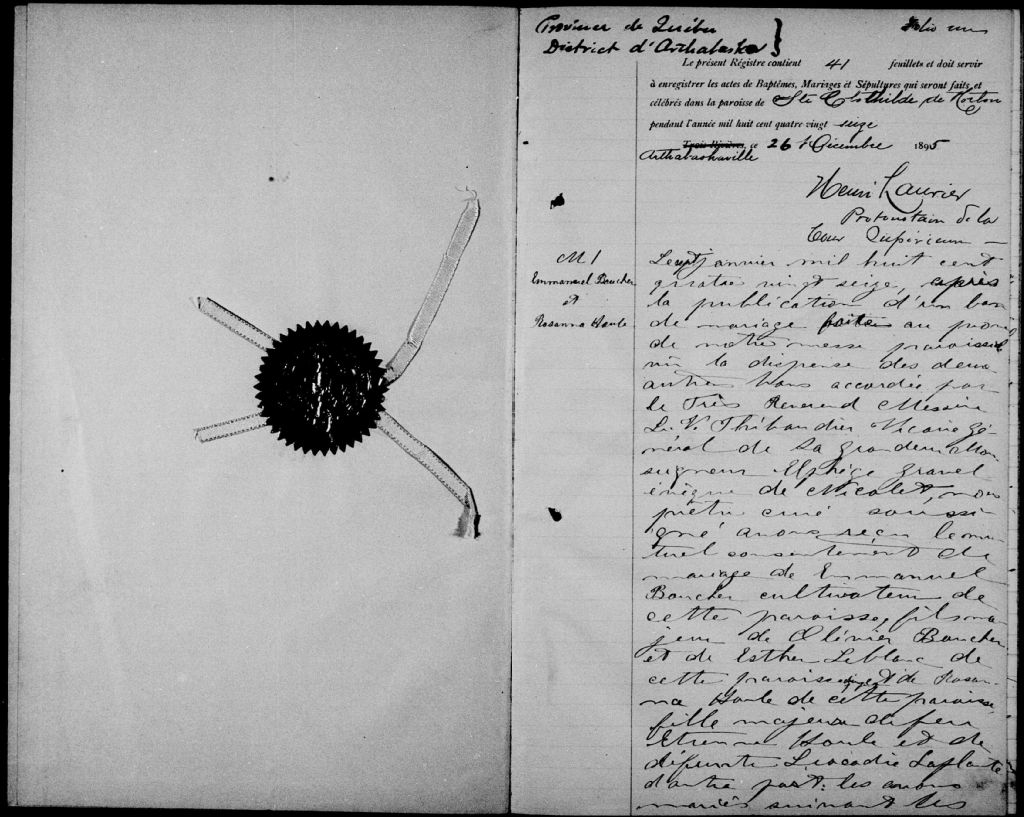 Province de Québec
District d'Arthabaska }
Folio un
Le présent Régistre contient 41 feuillets et doit servir
à enregistrer les actes de Baptêmes, Mariages et Sépultures qui seront faits, et
célébrés dans la paroisse de Ste Clothilde de Horton
pendant l'année mil huit cent quatre vingt seize
Trois-Rivières, ce 26 Décembre 1895
Arthabaskaville
Henri Laurier
Protonotaire de la
Cour Supérieure
M 1
Emmanuel Boucher
et
Rosanna Houle
Le sept janvier mil huit cent
quatre vingt seize, après
la publication d'un ban
de mariage faite au prône
de notre messe paroissiale
vu la dispense des deux
autres bans accordée par
le Très Reverend Messire
L. V. Thibaudier Vicaire Gé-
néral de Sa Grandeur Mon
seigneur Elphège Gravel
évêque de Nicolet, nous
prêtre curé soussi
gné avons reçu le mu
tuel consentement de
mariage de Emmanuel
Boucher cultivateur de
cette paroisse, fils ma
jeur de Olivier Boucher
et de Esther Leblanc de
cette paroisse et de Rosan-
na Houle de cette paroisse
fille majeure de feu
Etienne Houle et de
défunte Léocadie Laplante
d'autre part: les avons
mariés suivant les